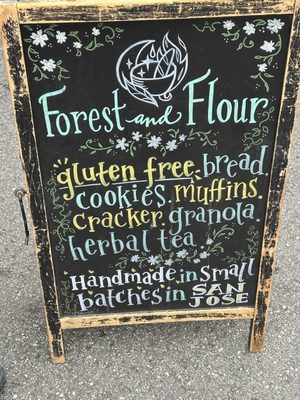 Forest and Flour
gluten free. bread.
cookies. muffins.
cracker. granola.
herbal tea.
Handmade in Small
batches in SAN
JOSE